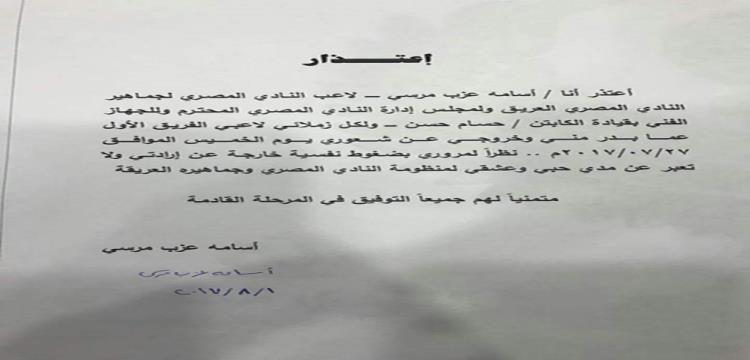 إعـتـــــذار
أعتذر أنا / أسامه عزب مرسي ــ لاعب النادي المصري لجماهير
النادي المصري العريق ولمجلس إدارة النادي المصري المحترم وللجهاز
الفني بقيادة الكابتن / حسام حسن ــ ولكل زملائي لاعبي الفريق الأول
عما بدر مني وخروجي عن شعوري يوم الخميس الموافق
٢٠١٧/٠٧/٢٧م .. نظراً لمروري بضغوط نفسية خارجة عن إرادتي ولا
تعبر عن مدي حبي وعشقي لمنظومة النادي المصري وجماهيره العريقة
متمنياً لهم جميعاً التوفيق في المرحلة القادمة
أسامه عزب مرسي
أسامه عزب مرسي
٢٠١٧/٨/١